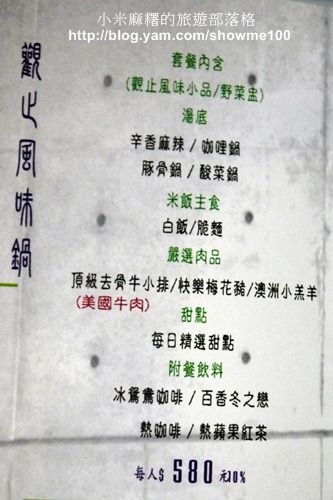 小米麻糬的旅遊部落格
http://blog.yam.com/showme100
觀止風味鍋
套餐內含
(觀止風味小品/野菜盅)
湯底
辛香麻辣 / 咖哩鍋
豚骨鍋 / 酸菜鍋
米飯主食
白飯/脆麵
嚴選肉品
頂級去骨牛小排/快樂梅花豬/澳洲小羔羊
(美國牛肉)
甜點
每日精選甜點
附餐飲料
冰鴛鴦咖啡 / 百香冬之戀
熱咖啡 / 熱蘋果紅茶
每人$ 580 元10%